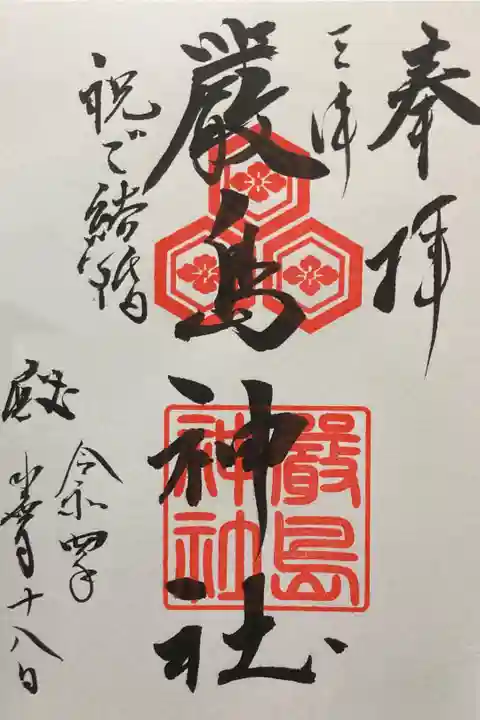 奉拝
三津
厳島神社
嚴島神社
祝ご結婚
令和四年
十八日